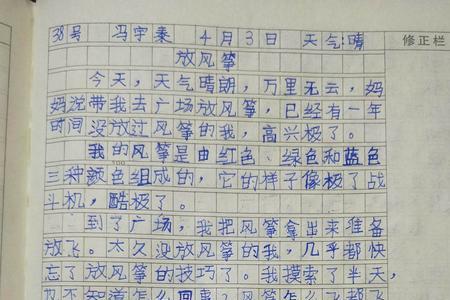 38号 冯宇秦 4月3日 天气:晴 修正栏
放风筝
今天,天气晴朗,万里无云,妈
妈说带我去广场放风筝,已经有一年
时间没放过风筝的我,高兴极了。
我的风筝是由红色、绿色和蓝色
100
三种颜色组成的,它的样子像极了战
斗机,酷极了。
到了广场,我把风筝拿出来准备
放飞。太久没放风筝的我,几乎都快
忘了放风筝的技巧了。我摸索了半天,
也不知道怎么回事?风筝怎么飞都